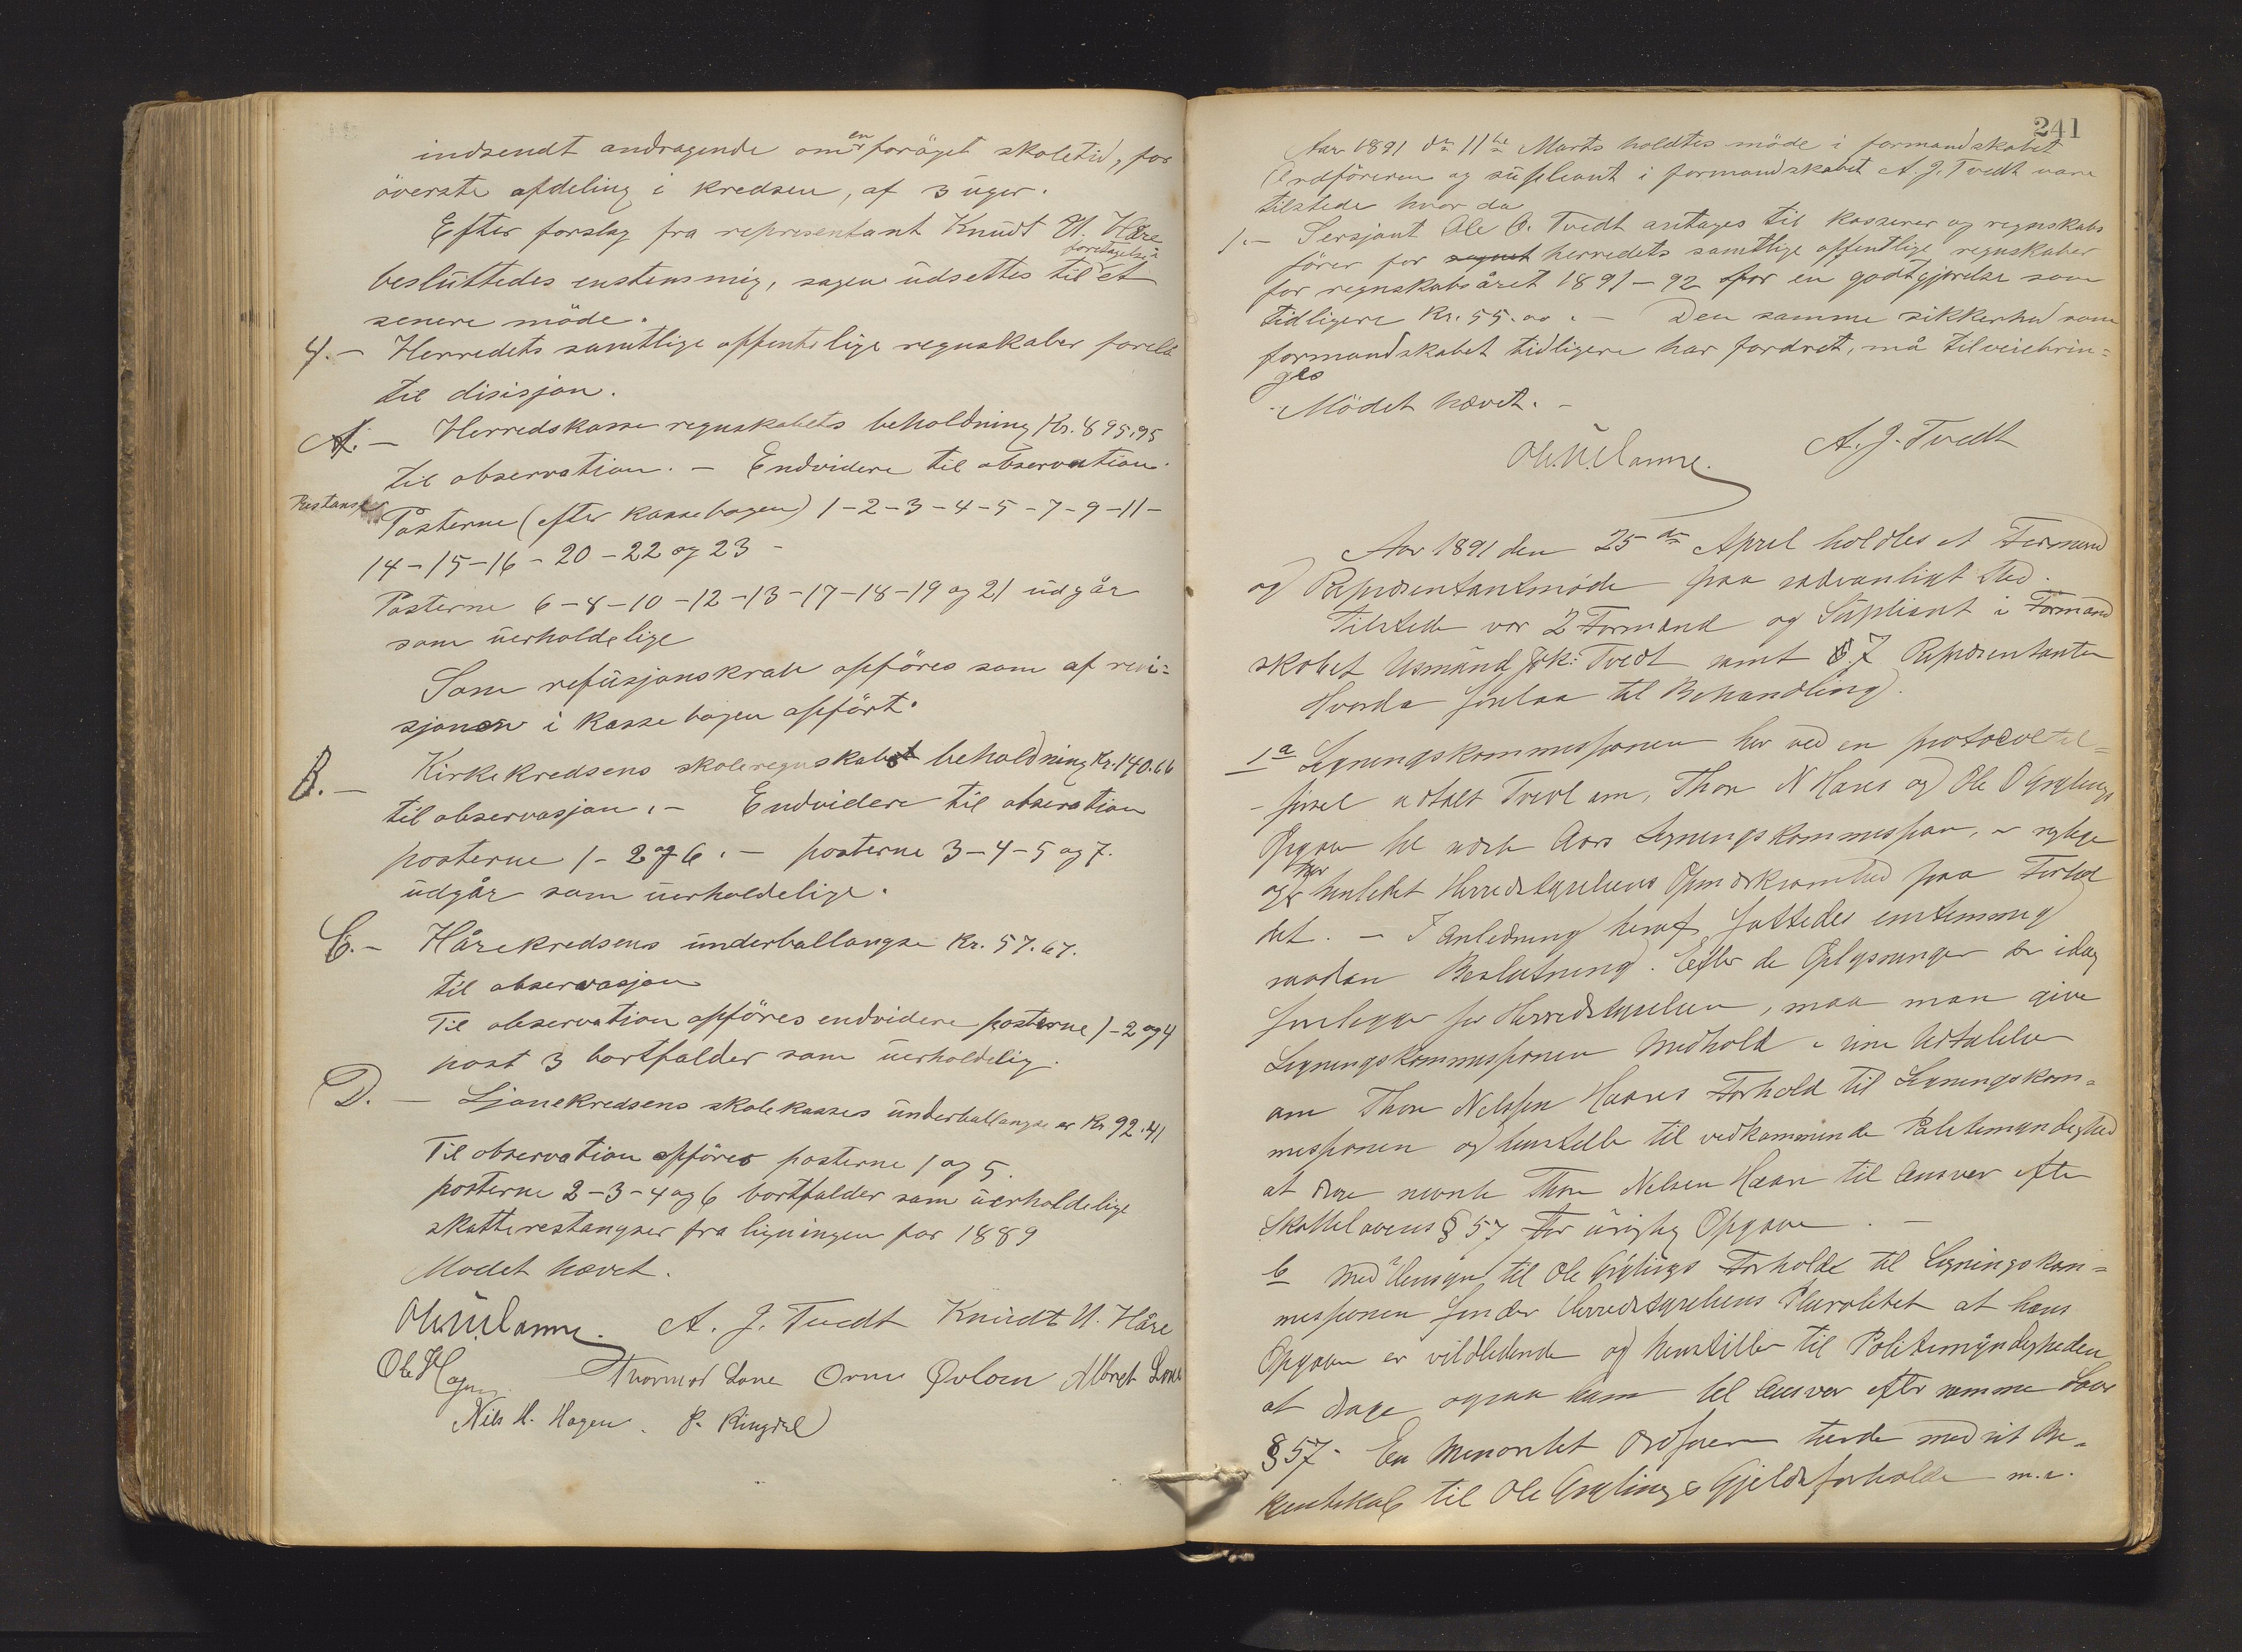 indsendt andragende om en forøget skoletid, for
överste afdeling i kredsen, af 3 uger.
Efter forslag fra representant Knudt N. Håre
besluttedes enstemmig, sagen udsettes til foretagelse i et
senere möde.
4. - Herredets samtlige offentlige regnskaber forelå
til disisjon.
A. - Herredskasse regnskabets beholdning Kr. 895,95
til observation. - Endvidere til observation
Restanse Posterne (efter kassebogen) 1-2-3-4-5-7-9-11-
14-15-16-20-22 og 23 -
Posterne 6-8-10-12-13-17-18-19 og 21 udgår
som uerholdelige
Som refusjonskrav opföres som af revi=
sjonen i kassebogen opfört.
B. - Kirkekredsens skoleregnskabet beholdning Kr. 140.66
til observasjon. - Endvidere til observation
posterne 1-2 og 6. - posterne 3-4-5 og 7.
udgår som uerholdelige.
C. - Hårekredsens underballangse Kr. 57.67.
til observasjon
Til observation opföres endvidere posterne 1-2 og 4
post 3 bortfalder som uerholdelig.
D. - Ljonekredsens skolekasses underballangse er Kr 92.41
Til observation opföres posterne 1 og 5.
posterne 2-3-4 og 6 bortfalder som uerholdelige
skatterestangser fra ligningen for 1889
Mödet hævet.
A. J. Tvedt Knudt N. Håre
Ole Hagen Thormod Lone Orm Øvloen Albregt Lone
Nils H. Hagen. P. Ringdal
241
Aar 1891 dn 11te Marts holdtes möde i formandskabet
Ordföreren og supleant i formandskabet A. J. Tvedt vare
tilstede hvor da
1. - Sersjant Ole O. Tvedt antages til kasserer og regnskabs
förer for sognet herredets samtlige offentlige regnskaber
for regnskabsåret 1891-92 for en godtgjørelse som
tidligere Kr. 55.00. - Den samme sikkerhed som
formandskabet tidligere har fordret, må tilveiebrin=
ges
Mödet hævet. -
A. J. Tvedt
Aar 1891 den 25de April holdtes et Formand
og Repræsentantmøde paa sædvanligt Sted.
Tilstede var 2 Formænd og Supliant i Formand
skabet Asmund Tvedt samt 7 Repræsentanter
Hvorda forelaa til Behandling.
1a Ligningskommissjonen har ved en protocoltil=
førsel udtalt Tvivl om, Thor N Haars og Ole O Gryting's
Opgaver til næste Aars Ligningskommissjon, er rigtige
og har henledet Herredstyrelsens Opmærksomhed paa Forhol
det. - I Anledning heraf fattedes enstemmig
saadan Beslutning. Efter de Oplysninger der idag
forelegger for Herredstyrelsen, maa man give
Ligningskommissjonen Medhold i sine Udtalelser
om Thor Nelsen Haars Forhold til Ligningskom=
missjonen og henstille til vedkommende Politimyndighed
at drage nævnte Thor Nelsen Haar til Ansvar efter
Skattelovens § 57 for urigtig Opgave. -
b Med Hensyn til Ole Grytings Forhold til Ligningskom=
missjonen finder Herredstyrelsens Pluralitet at hans
Opgave er vildledende og henstiller til Politimyndigheden
at drage ogsaa ham til Ansvar efter samme Lovs
§ 57. En Minoritet Ordføren turde med sit Be=
kjentskab til Ole Grytings Gjeldsforholde m.v.